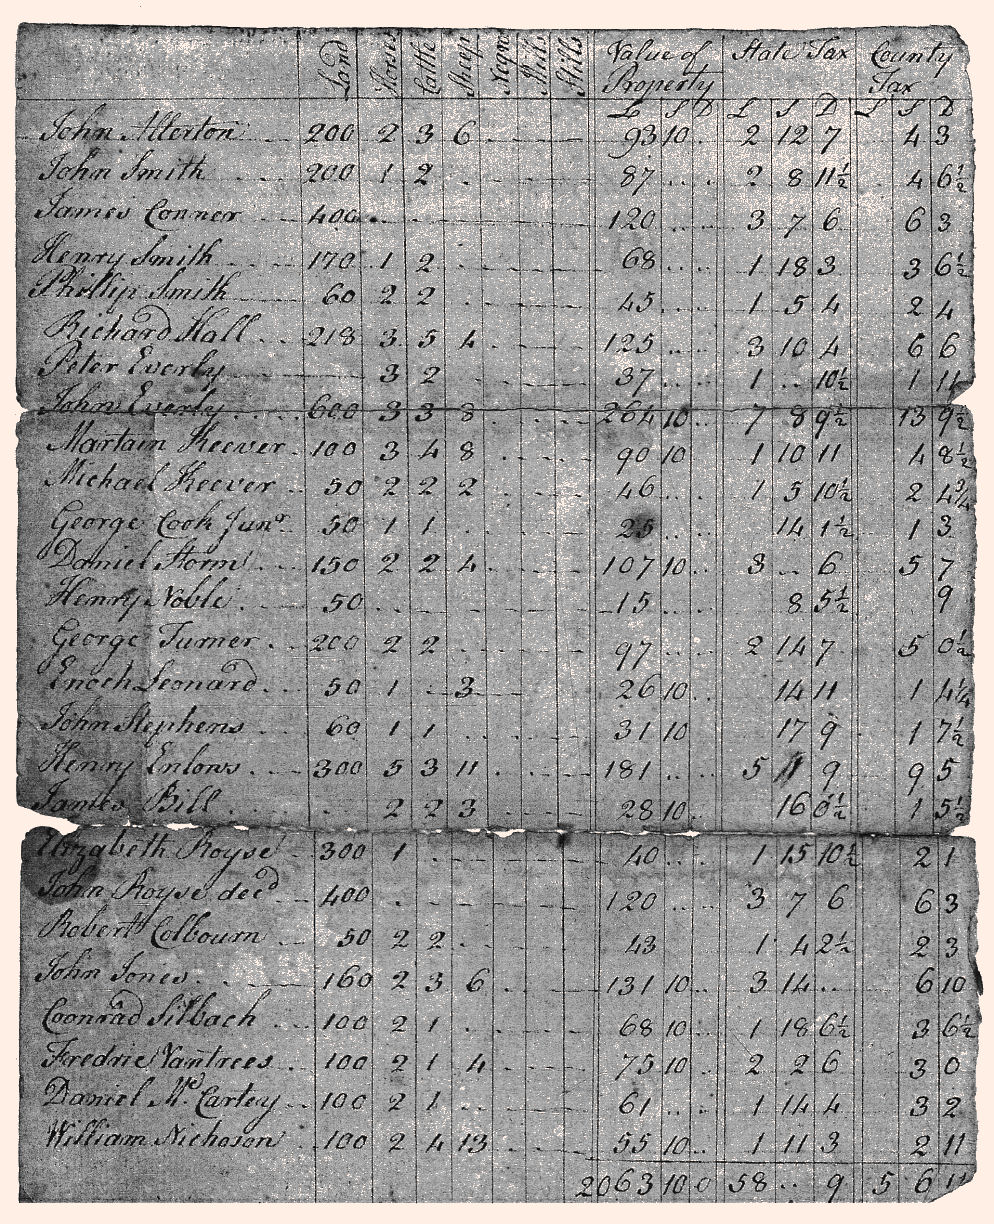 Land Horses Cattle Sheep Negros Mills Stills Value of Property State Tax County Tax
£ S D £ S D £ S D
John Allerton 200 2 3 6 93 10 2 12 7 4 3
John Smith 200 1 2 87 2 8 11½ 4 6½
James Conner 400 120 3 7 6 6 3
Henry Smith 170 1 2 68 1 18 3 3 6½
Phillip Smith 60 2 2 45 1 5 4 2 4
Richard Hall 218 3 5 4 125 3 10 4 6 6
Peter Everly 3 2 37 1 10½ 1 11
John Everly 600 3 3 8 264 10 7 8 9½ 13 9½
Martain Keever 100 3 4 8 90 10 1 10 11 4 8½
Michael Keever 50 2 2 2 46 1 5 10½ 2 4¾
George Cook Junr 50 1 1 25 14 1½ 1 3
Daniel Storm 150 2 2 4 107 10 3 6 5 7
Henry Noble 50 15 8 5½ 9
George Turner 200 2 2 97 2 14 7 5 0½
Enoch Leonard 50 1 3 26 10 14 11 1 4¼
John Stephens 60 1 1 31 10 17 9 1 7½
Henry Enlows 300 5 3 11 181 5 9 9 5
James Bill 2 2 3 28 10 16 1 5½
Elizabeth Royse 300 1 40 1 15 10½ 2 1
John Royse decd 400 120 3 7 6 6 3
Robert Colbourn 50 2 2 43 1 4 2½ 2 3
John Jones 160 2 3 6 131 10 3 14 6 10
Coonrad Silbach 100 2 1 68 10 1 18 6½ 3 6½
Fredric Vantrees 100 2 1 4 75 10 2 2 6 3 0
Daniel Mc Cartey 100 2 1 61 1 14 4 3 2
William Nichoson 100 2 4 13 55 10 1 11 3 2 11
2063 10 0 58 9 5 6 11